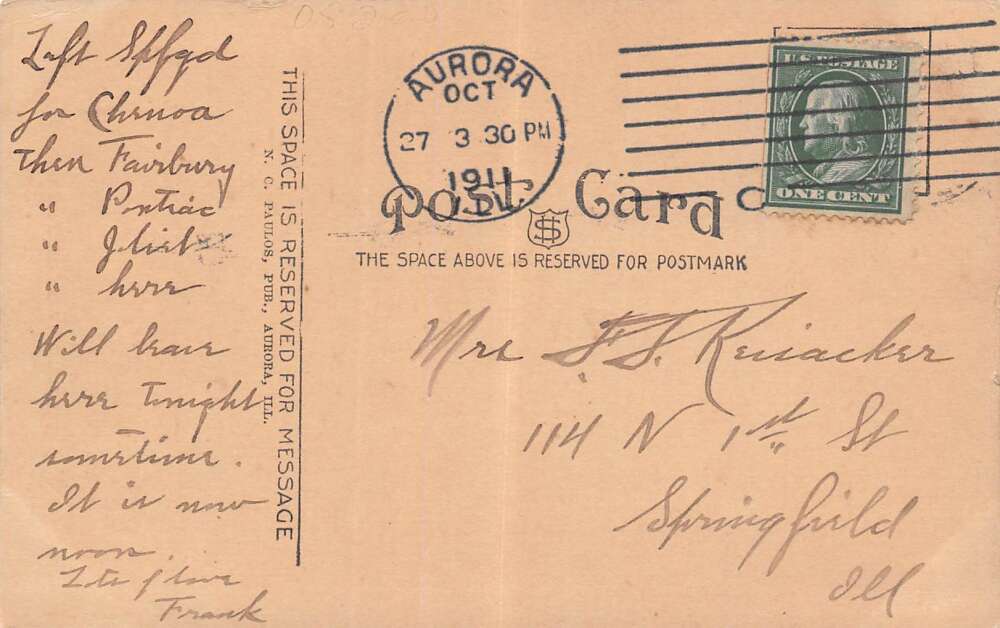 Left Spfgd
for Chenoa
then Fairbury
" Pontiac
" Joliet
" here
Will leave
here Tonight
sometime.
It is now
noon.
Lts of love
Frank
THIS SPACE IS RESERVED FOR MESSAGE
N. C. PAULOS, PUB., AURORA, ILL.
AURORA
OCT
27 3 30 PM
1911
ILL.
U.S. POSTAGE
ONE CENT
Post Card
THE SPACE ABOVE IS RESERVED FOR POSTMARK
Mrs F. S. Keisacker
114 N 1st St
Springfield
Ill